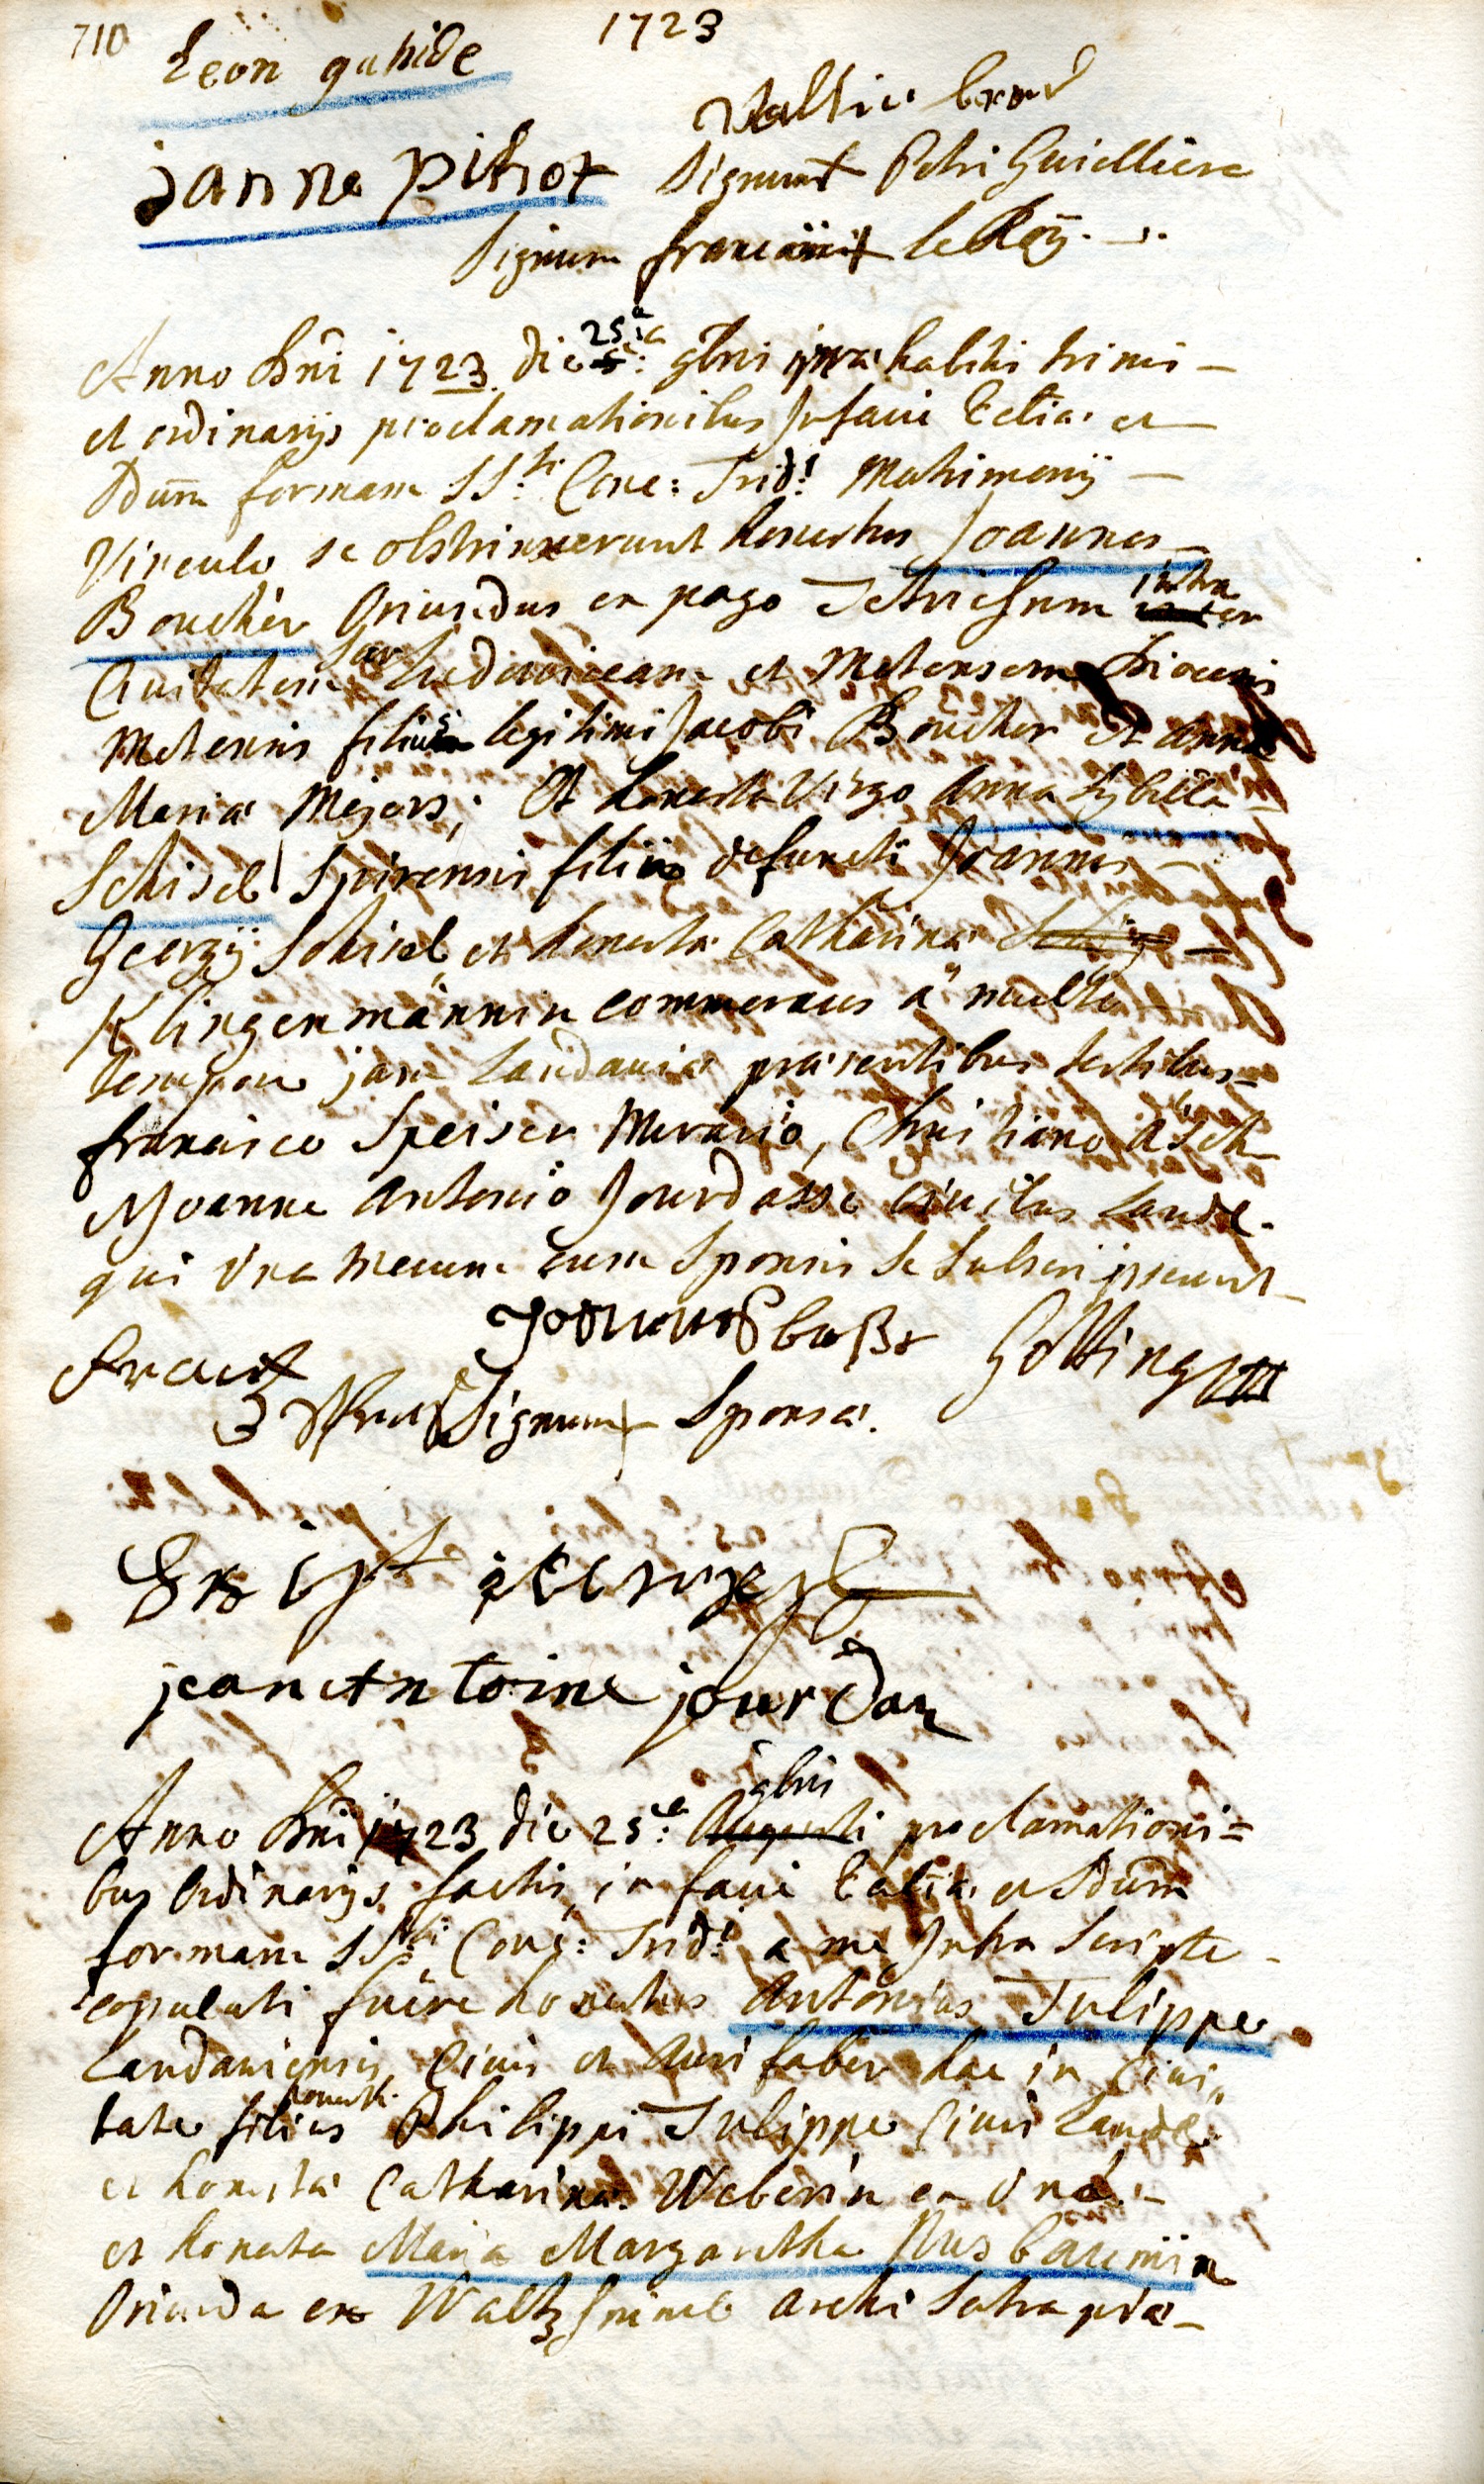 710 1723
Leon gahide
janne pitrot Signum + Petri Guielliere
Signum francisci + le Roy.
Anno Dni 1723 die 25ta 9bris præhabitis trinis
et ordinarijs proclamationibus In facie Eccliæ et
Sdum formam SS:ti Conc: Trid: Matrimonij
Vinculo se obstrinxerunt honestus Joannes
Boucher Oriundus ex pago intra
Civitatem Sar Ludoviceam et Metensem Diocesis
Metensis filius legitimi Jacobi Boucher et Annæ
Mariæ Mejers; et honesta Virgo Anna Sybilla
Schisel Spirensis filia defuncti Joannis
Georgij Schisel et honestæ Catharinæ
Klingenmännin commorans à multo
tempore jam Landaviæ præsentibus testibus
francisco Speiser Murario, Christiano Asch
Joanne Antonio Jourdasse civibus Landa.
qui una mecum cum Sponsis se Subscripserunt
Signum + Sponsæ.
jean Antoine jourdan
Anno Dni 1723 die 25ta 9bris Augusti proclamationi=
bus Ordinarijs factis in facie Eccliæ et Sdum
formam SSti Conc: Trid: a me Infra Scripto
copulati fuere honestus Antonius Tulippe
Landaviensis Civis et Aurifaber hac in Civi„
tate filius honesti Philippi Tulippe Civis Landa
et honestæ Catharinæ Weberin ex Una
et honesta Maria Margaretha Nusbaumin
Oriunda ex Archi Satrapiæ